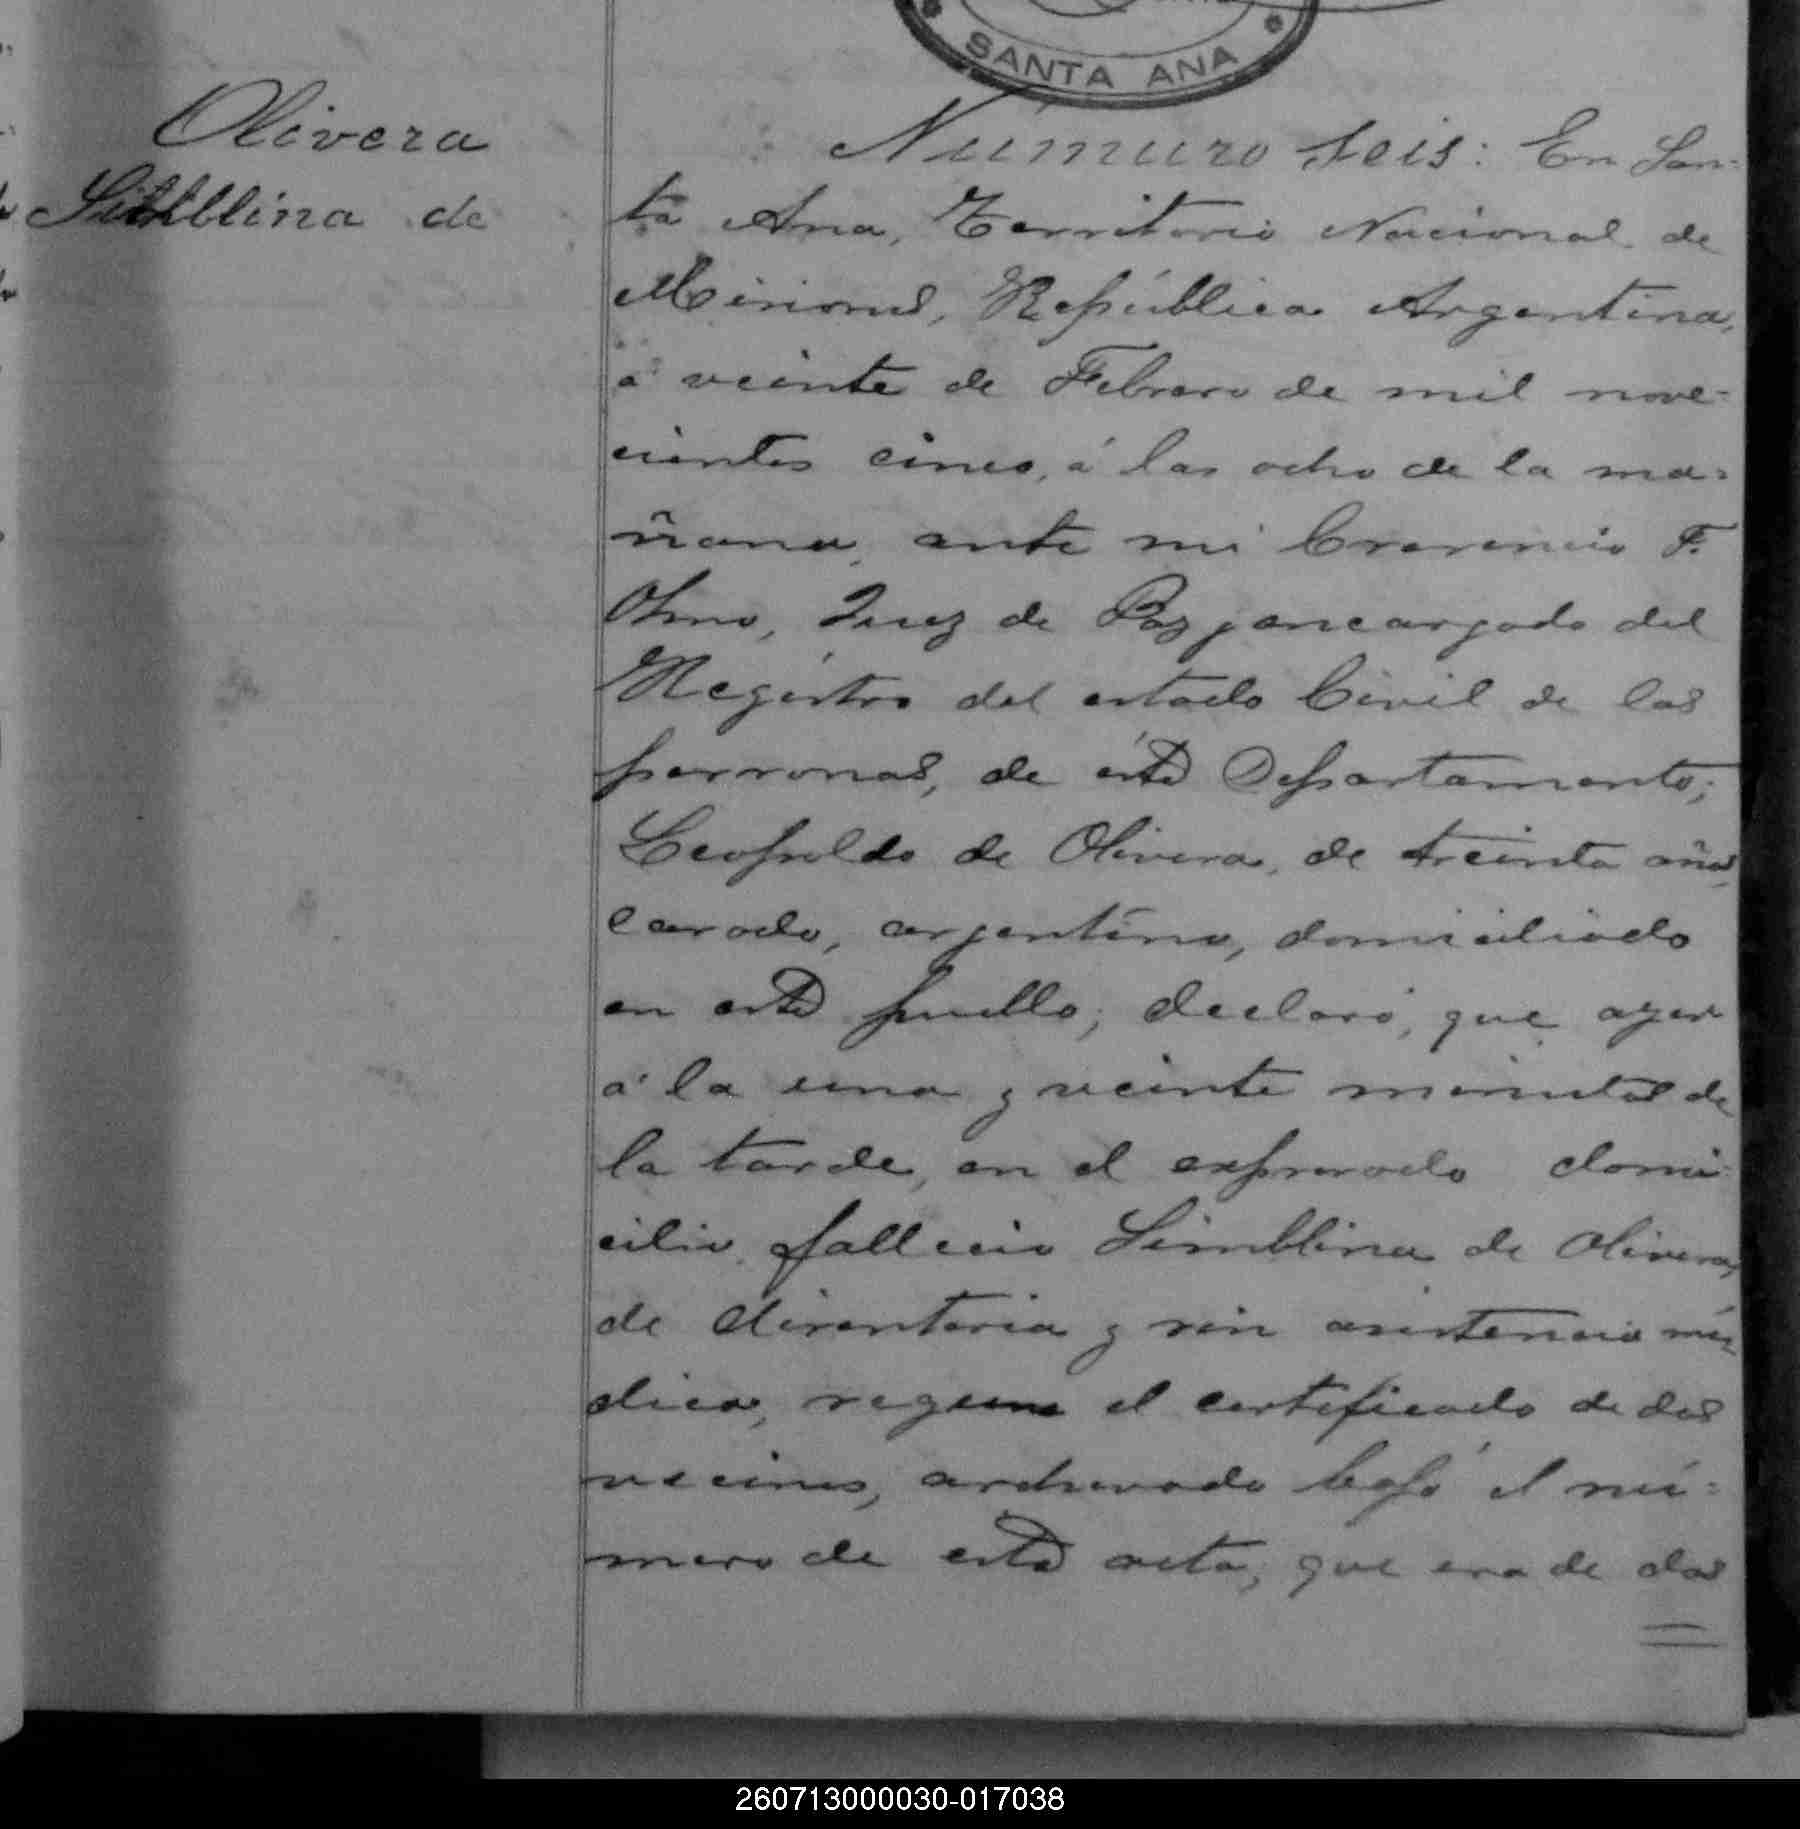 SANTA ANA
Olivera
Simblina de
Número seis: En San-
ta Ana, Territorio Nacional de
Misiones, República Argentina,
á veinte de Febrero de mil nove-
cientos cinco, á las ocho de la ma-
ñana, ante mi F.
Olmo, Juez de Paz y encargado del
Registro del estado Civil de las
personas, de éste Departamento;
Leopoldo de Olivera, de treinta años,
casado, argentino, domiciliado
en este pueblo; declaró, que ayer
á la una y veinte minutos de
la tarde, en el expresado domi-
cilio falleció Simblina de Olivera,
de disenteria y sin asistencia mé-
dica, segun el certificado de dos
vecinos, archivado bajo el nú-
mero de esta acta, que era de dos
260713000030-017038